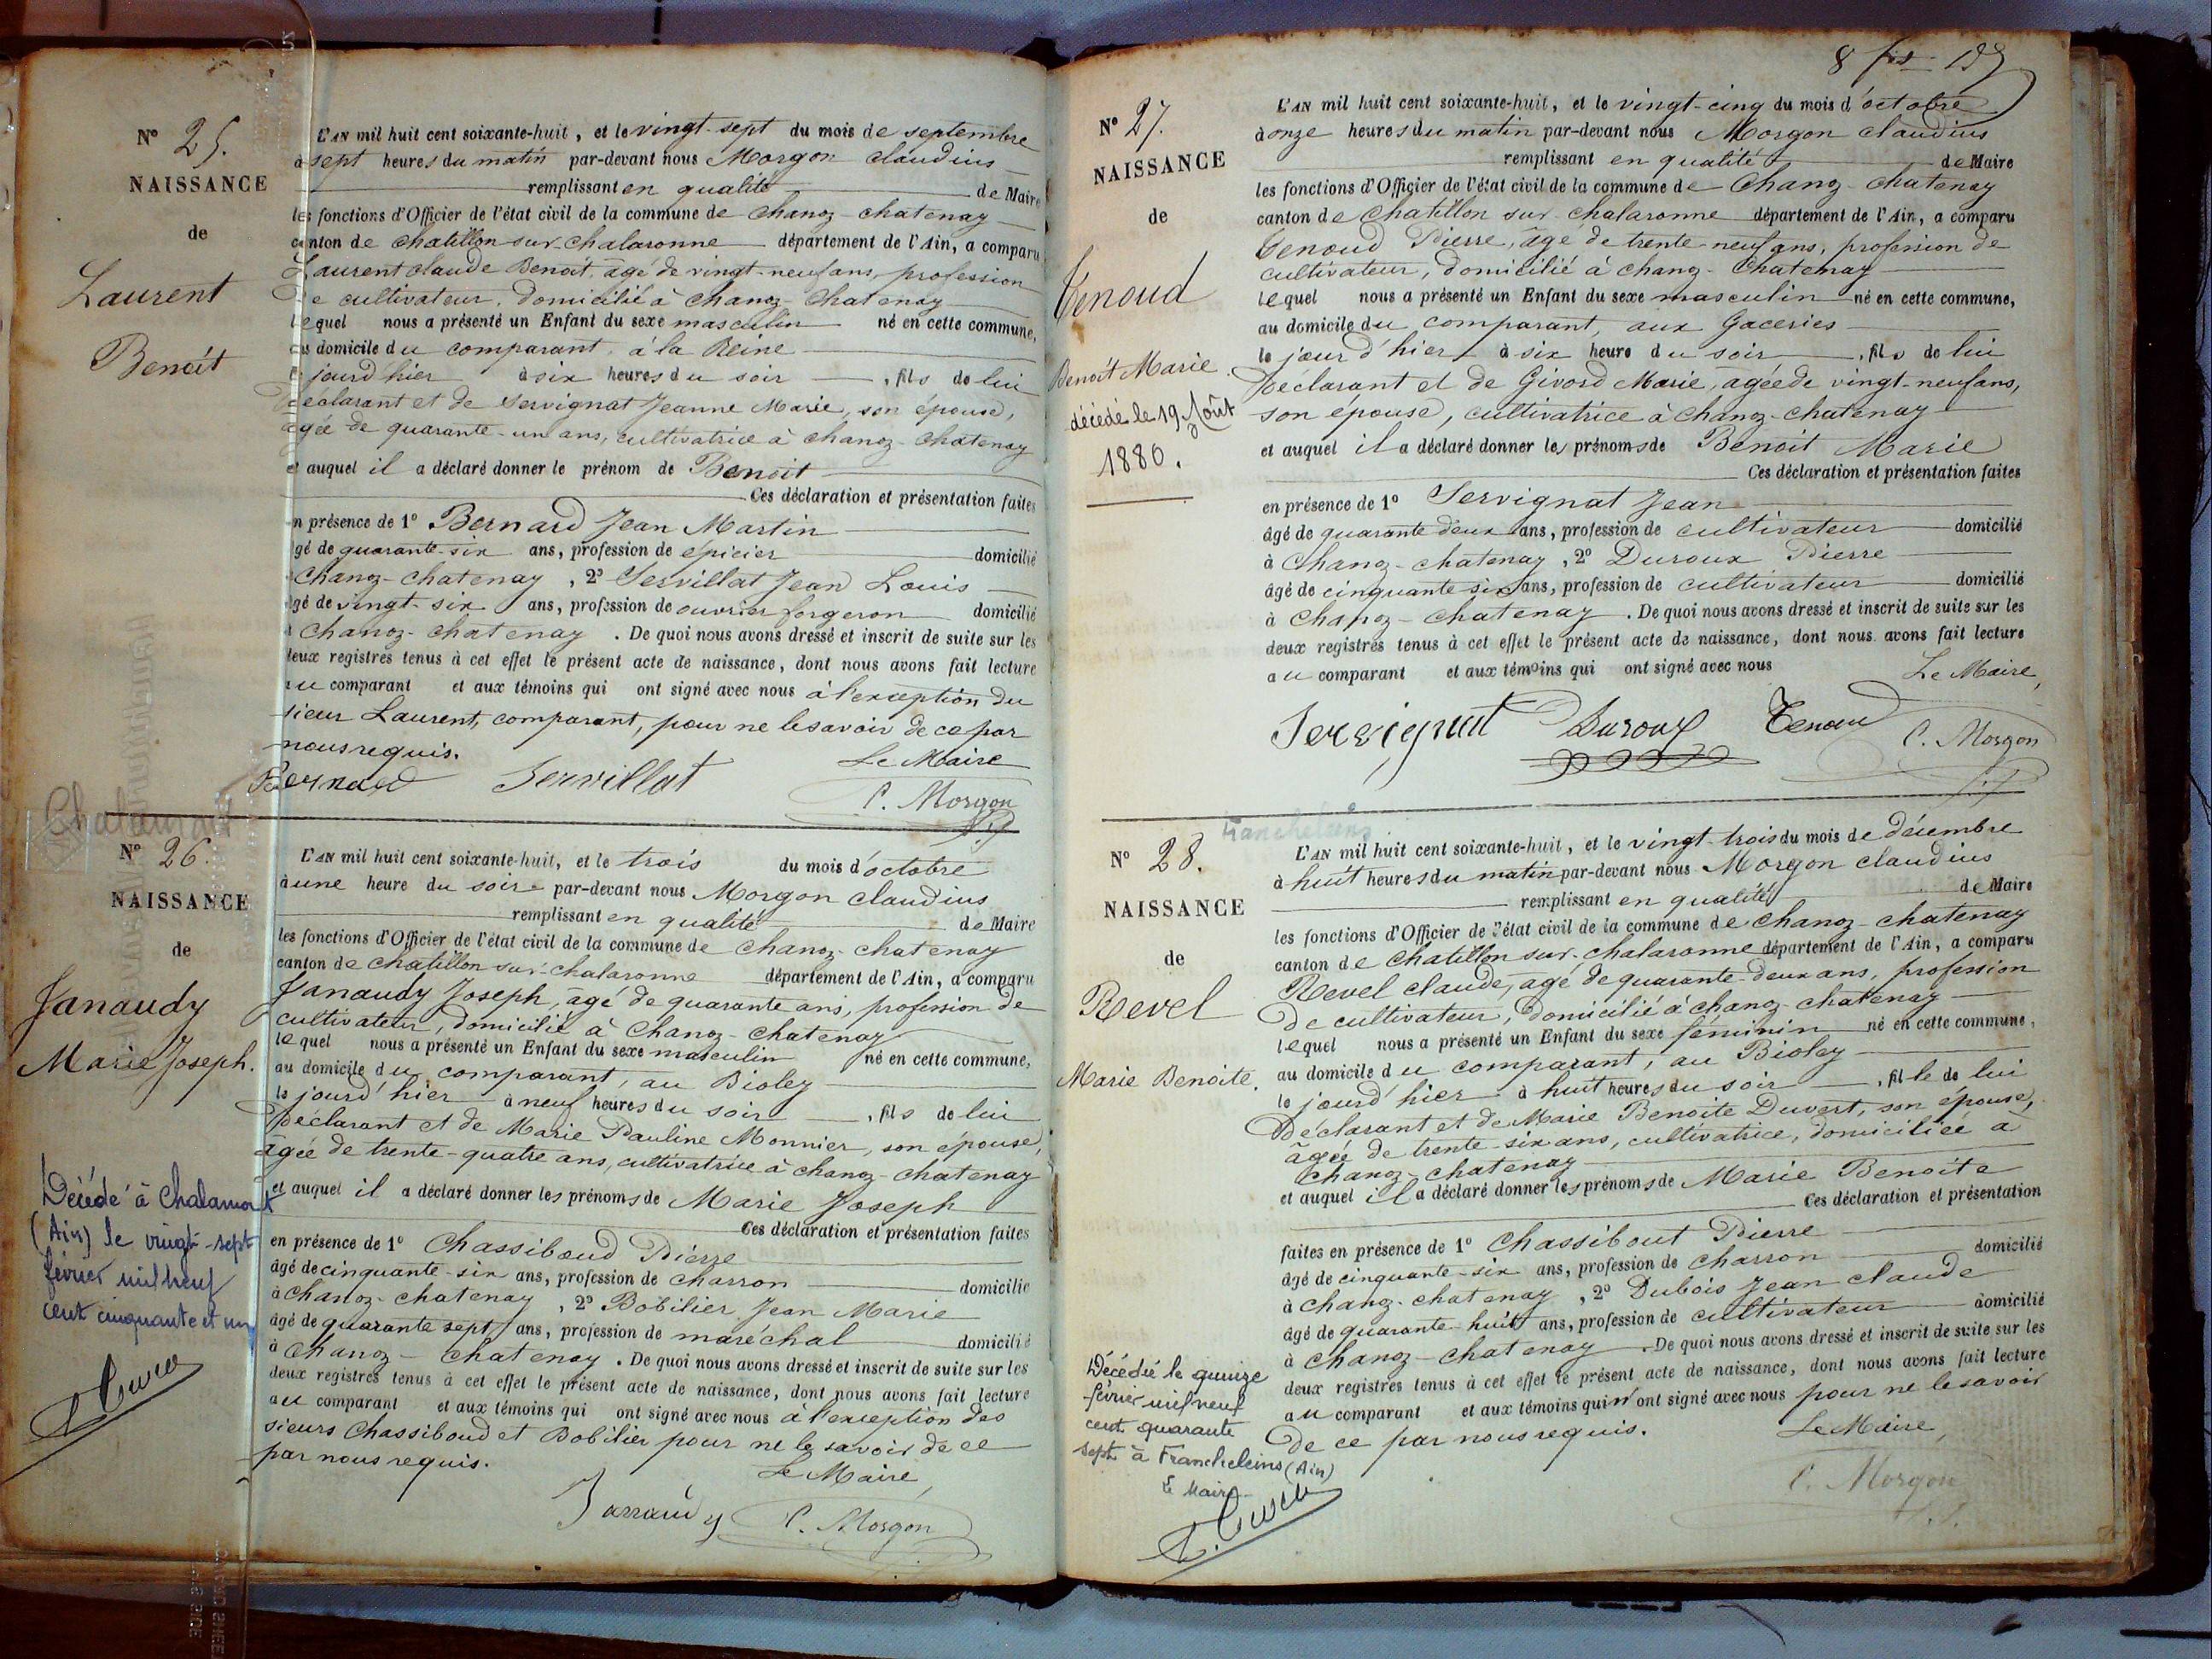 N° 25.
NAISSANCE
de
Laurent
Benoit
L'AN mil huit cent soixante-huit, et le vingt-sept du mois de septembre
à sept heures du matin par-devant nous Morgon claudius
remplissant en qualité de Maire
les fonctions d'Officier de l'état civil de la commune de Chanoz-chatenay
canton de chatillon sur chalaronne département de l'Ain, a comparu
Laurent claude Benoit, âgé de vingt-neuf ans, profession
de cultivateur, domicilié à Chanoz-Chatenay
lequel nous a présenté un Enfant du sexe masculin né en cette commune,
au domicile du comparant, à la Reine
le jourd'hier à six heures du soir, fils de lui
Déclarant et de Servignat Jeanne Marie, son épouse,
âgée de quarante-un ans, cultivatrice à Chanoz-Chatenay
et auquel il a déclaré donner le prénom de Benoit
Ces déclaration et présentation faites
en présence de 1° Bernard Jean Martin
âgé de quarante-six ans, profession de épicier domicilié
à Chanoz-chatenay, 2° Servillat Jean Louis
âgé de vingt-six ans, profession de ouvrier forgeron domicilié
à Chanoz-chatenay. De quoi nous avons dressé et inscrit de suite sur les
deux registres tenus à cet effet le présent acte de naissance, dont nous avons fait lecture
au comparant et aux témoins qui ont signé avec nous à l'exception du
sieur Laurent, comparant, pour ne le savoir de ce par
nous requis.
Le Maire
Bernard Servillat C. Morgon
Chalamont
N° 26.
NAISSANCE
de
Janaudy
Marie Joseph.
Décédé à Chalamont
(Ain) le vingt-sept
février mil neuf
cent cinquante et un
L'AN mil huit cent soixante-huit, et le trois du mois d'octobre
à une heure du soir par-devant nous Morgon claudius
remplissant en qualité de Maire
les fonctions d'Officier de l'état civil de la commune de Chanoz-chatenay
canton de chatillon sur-chalaronne département de l'Ain, a comparu
Janaudy Joseph, âgé de quarante ans, profession de
cultivateur, domicilié à Chanoz-chatenay
lequel nous a présenté un Enfant du sexe masculin né en cette commune,
au domicile du comparant, au Bioley
le jourd'hier à neuf heures du soir, fils de lui
Déclarant et de Marie Pauline Monnier, son épouse,
âgée de trente-quatre ans, cultivatrice à chanoz-chatenay
et auquel il a déclaré donner les prénoms de Marie Joseph
Ces déclaration et présentation faites
en présence de 1° Chassiboud Pierre
âgé de cinquante-six ans, profession de charron domicilié
à Chanoz-chatenay, 2° Bobilier Jean Marie
âgé de quarante sept ans, profession de maréchal domicilié
à Chanoz-chatenay. De quoi nous avons dressé et inscrit de suite sur les
deux registres tenus à cet effet le présent acte de naissance, dont nous avons fait lecture
au comparant et aux témoins qui ont signé avec nous à l'exception des
sieurs Chassiboud et Bobilier pour ne le savoir de ce
par nous requis.
Le Maire,
C. Morgon
N° 27.
NAISSANCE
de
Tenoud
Benoit Marie.
décédé le 19 Août
1880.
L'AN mil huit cent soixante-huit, et le vingt-cinq du mois d'octobre
à onze heures du matin par-devant nous Morgon claudius
remplissant en qualité de Maire
les fonctions d'Officier de l'état civil de la commune de Chanoz-chatenay
canton de Chatillon sur-chalaronne département de l'Ain, a comparu
Tenoud Pierre, âgé de trente-neuf ans, profession de
cultivateur, domicilié à chanoz-Chatenay
lequel nous a présenté un Enfant du sexe masculin né en cette commune,
au domicile du comparant, aux Gaceries
le jour d'hier à six heure du soir, fils de lui
Déclarant et de Givord Marie, âgée de vingt-neuf ans,
son épouse, cultivatrice à chanoz-chatenay
et auquel il a déclaré donner les prénoms de Benoit Marie
Ces déclaration et présentation faites
en présence de 1° Servignat Jean
âgé de quarante deux ans, profession de cultivateur domicilié
à Chanoz-chatenay, 2° Duroux Pierre
âgé de cinquante six ans, profession de cultivateur domicilié
à Chanoz-chatenay. De quoi nous avons dressé et inscrit de suite sur les
deux registres tenus à cet effet le présent acte de naissance, dont nous avons fait lecture
au comparant et aux témoins qui ont signé avec nous
Le Maire,
Servignat Duroux C. Morgon
Francheleins
N° 28.
NAISSANCE
de
Revel
Marie Benoite.
Décédée le quinze
février mil neuf
cent quarante
sept à Francheleins (Ain)
Le Maire
L'AN mil huit cent soixante-huit, et le vingt-trois du mois de décembre
à huit heures du matin par-devant nous Morgon claudius
remplissant en qualité de Maire
les fonctions d'Officier de l'état civil de la commune de chanoz-chatenay
canton de Chatillon sur-chalaronne département de l'Ain, a comparu
Revel claude, âgé de quarante-deux ans, profession
de cultivateur, domicilié à chanoz-chatenay
lequel nous a présenté un Enfant du sexe féminin né en cette commune,
au domicile du comparant, au Bioley
le jourd'hier à huit heures du soir, fille de lui
Déclarant et de Marie Benoite Duvert, son épouse,
âgée de trente-six ans, cultivatrice, domiciliée à
Chanoz-chatenay
et auquel il a déclaré donner les prénoms de Marie Benoite
Ces déclaration et présentation
faites en présence de 1° Chassibout Pierre
âgé de cinquante-six ans, profession de charron domicilié
à Chanoz-chatenay, 2° Dubois Jean claude
âgé de quarante-huit ans, profession de cultivateur domicilié
à Chanoz-chatenay. De quoi nous avons dressé et inscrit de suite sur les
deux registres tenus à cet effet le présent acte de naissance, dont nous avons fait lecture
au comparant et aux témoins qui n'ont signé avec nous pour ne le savoir
de ce par nous requis.
Le Maire,
C. Morgon